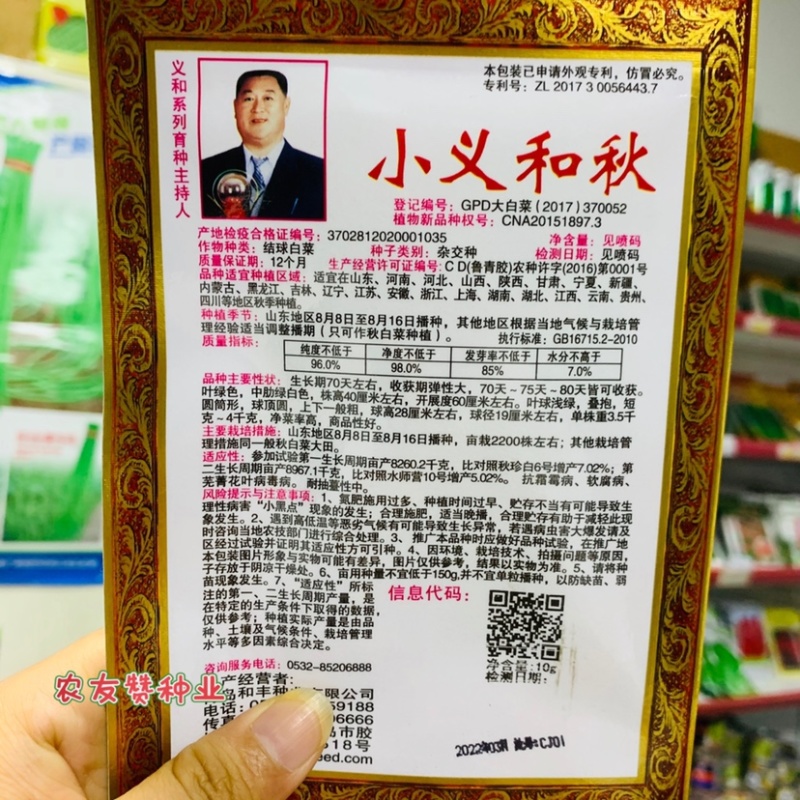 义和系列育种主持人
本包装已申请外观专利，仿冒必究。
专利号：ZL 2017 3 0056443.7
小义和秋
登记编号：GPD大白菜(2017)370052
植物新品种权号：CNA20151897.3
产地检疫合格证编号：3702812020001035 净含量：见喷码
作物种类：结球白菜 种子类别：杂交种 检测日期：见喷码
质量保证期：12个月 生产经营许可证编号：C D(鲁青胶)农种许字(2016)第0001号
品种适宜种植区域：适宜在山东、河南、河北、山西、陕西、甘肃、宁夏、新疆、
内蒙古、黑龙江、吉林、辽宁、江苏、安徽、浙江、上海、湖南、湖北、江西、云南、贵州、
四川等地区秋季种植。
种植季节：山东地区8月8日至8月16日播种，其他地区根据当地气候与栽培管
理经验适当调整播期（只可作秋白菜种植）。 执行标准：GB16715.2-2010
质量指标：
纯度不低于 净度不低于 发芽率不低于 水分不高于
96.0% 98.0% 85% 7.0%
品种主要性状：生长期70天左右，收获期弹性大，70天～75天～80天皆可收获。
叶绿色，中肋绿白色，株高40厘米左右，开展度60厘米左右。叶球浅绿，叠抱，短
圆筒形，球顶圆，上下一般粗，球高28厘米左右，球径19厘米左右，单株重3.5千
克～4千克，净菜率高，商品性好。
主要栽培措施：山东地区8月8日至8月16日播种，亩栽2200株左右；其他栽培管
理措施同一般秋白菜大田。
适应性：参加试验第一生长周期亩产8260.2千克，比对照秋珍白6号增产7.02%；第
二生长周期亩产8967.1千克，比对照水师营10号增产5.02%。 抗霜霉病、软腐病、
芜菁花叶病毒病。耐抽薹性中。
风险提示与注意事项：1、氮肥施用过多、种植时间过早、贮存不当有可能导致生
理性病害“小黑点”现象的发生；合理施肥，适当晚播，合理贮存有助于减轻此现
象发生。2、遇到高低温等恶劣气候有可能导致生长异常，若遇病虫害大爆发请及
时咨询当地农技部门进行综合处理。3、 推广本品种时应做好品种试验，在推广地
区经过试验并证明其适应性方可引种。4、因环境、栽培技术、拍摄问题等原因，
本包装图片形象与实物可能有差异，图片仅供参考，结果以实物为准。5、请将种
子存放于阴凉干燥处。6、亩用种量不宜低于150g,并不宜单粒播种，以防缺苗、弱
苗现象发生。7、“适应性”所标
注的第一、二生长周期产量，是
在特定的生产条件下取得的数据，
仅供参考；种植实际产量是由品
种、土壤及气候条件、栽培管理
水平等多因素综合决定。
信息代码：
净含量：10g
检测日期：
咨询服务电话：0532-85206888
产经营者：
岛和丰种 有限公司
电话：05 59188
传真 06666
岛市胶
18号
eed.com
2022年03月 批号:CJ01
农友赞种业